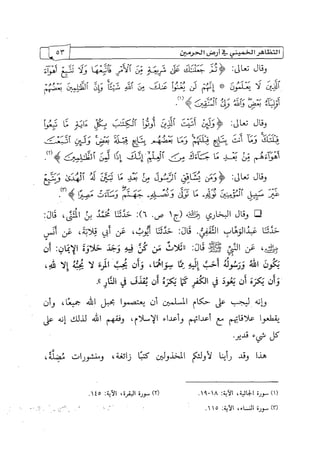 التظاهر الخميني في أرض الحرمين
٥٣
وقال تعالى: ﴿ثُمَّ جَعَلْنَاكَ عَلَى شَرِيعَةٍ مِّنَ الْأَمْرِ فَاتَّبِعْهَا وَلَا تَتَّبِعْ أَهْوَاءَ
الَّذِينَ لَا يَعْلَمُونَ * إِنَّهُمْ لَن يُغْنُوا عَنكَ مِنَ اللَّهِ شَيْئًا وَإِنَّ الظَّالِمِينَ بَعْضُهُمْ
أَوْلِيَاءُ بَعْضٍ وَاللَّهُ وَلِيُّ الْمُتَّقِينَ﴾(١).
وقال تعالى: ﴿وَلَئِنْ أَتَيْتَ الَّذِينَ أُوتُوا الْكِتَابَ بِكُلِّ آيَةٍ مَّا تَبِعُوا
قِبْلَتَكَ وَمَا أَنتَ بِتَابِعٍ قِبْلَتَهُمْ وَمَا بَعْضُهُم بِتَابِعٍ قِبْلَةَ بَعْضٍ وَلَئِنِ اتَّبَعْتَ
أَهْوَاءَهُم مِّن بَعْدِ مَا جَاءَكَ مِنَ الْعِلْمِ إِنَّكَ إِذًا لَّمِنَ الظَّالِمِينَ﴾(٢).
وقال تعالى: ﴿وَمَن يُشَاقِقِ الرَّسُولَ مِن بَعْدِ مَا تَبَيَّنَ لَهُ الْهُدَى وَيَتَّبِعْ
غَيْرَ سَبِيلِ الْمُؤْمِنِينَ نُوَلِّهِ مَا تَوَلَّى وَنُصْلِهِ جَهَنَّمَ وَسَاءَتْ مَصِيرًا﴾(٣).
وقال البخاري رحمه الله (ج١ ص٦٠): حَدَّثَنَا مُحَمَّدُ بْنُ الْمُثَنَّى، قَالَ:
حَدَّثَنَا عَبْدُالوَهَّابِ الثَّقَفِيُّ، قَالَ: حَدَّثَنَا أَيُّوبُ، عَنْ أَبِي قِلَابَةَ، عَنْ أَنَسٍ
رضي الله عنه، عَنِ النَّبِيِّ ﷺ قَالَ: «ثَلَاثٌ مَنْ كُنَّ فِيهِ وَجَدَ حَلَاوَةَ الإِيمَانِ: أَنْ
يَكُونَ اللهُ وَرَسُولُهُ أَحَبَّ إِلَيْهِ مِمَّا سِوَاهُمَا، وَأَنْ يُحِبَّ المَرْءَ لَا يُحِبُّهُ إِلَّا للهِ،
وَأَنْ يَكْرَهَ أَنْ يَعُودَ فِي الكُفْرِ كَمَا يَكْرَهُ أَنْ يُقْذَفَ فِي النَّارِ».
وإنه ليجب على حكام المسلمين أن يعتصموا بحبل الله جميعًا، وأن
يقطعوا علاقاتهم مع أعدائهم وأعداء الإسلام، وفقهم الله لذلك إنه على
كل شيء قدير.
هذا وقد رأينا لأولئكم المخذولين كتبًا زائغة، ومنشورات مُضِلَّة،
(١) سورة الجاثية، الآية: ١٨-١٩.
(٢) سورة البقرة، الآية: ١٤٥.
(٣) سورة النساء، الآية: ١١٥.